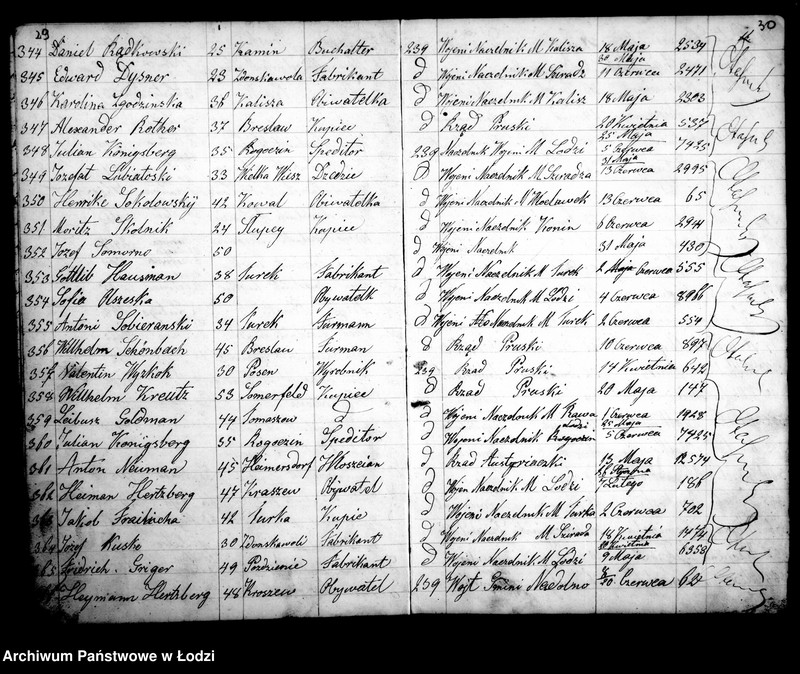 29
30
344 Daniel Radkowski 25 Kamin Buchalter 239 Wojeni Naczelnik M Kalisza 18 Maja 2534
30 Maja
345 Edward Zysner 23 Zdonskawola Fabrikant d Wojeni Naczelnik M Sieradz 11 Czerwca 2471
346 Karolina Zgodzinska 36 Kalisza Obiwatelka d Wojeni Naczelnik M Kalisz 18 Maja 2303
347 Alexander Rother 37 Breslaw Kupiec d Rząd Pruski 20 Kwietnia 537
25 Maja
348 Julian Königsberg 35 Rogoczin Speditor 239 Naczelnik Wojeni M Lodzi 5 Czerwca 7425
31 Maja
349 Jozefat Lubiatski 33 Wielka Wiesz d Wojeni Naczelnik M Sieradza 13 Czerwca 2995
350 Henrike Sokolowskÿ 42 Kowal Obiwatelka d Wojeni Naczelnik M Woclawek 13 Czerwca 65
351 Moritz Skolnik 24 Slupcy Kupiec d Wojeni Naczelnik Konin 6 Czerwca 2944
352 Jozef Somorno 50 d Wojeni Naczelnik 31 Maja 430
353 Gottlib Hausman 38 Turek Fabrikant d Wojeni Naczelnik M Turek 2 Czerwca 555
354 Sofia 50 Obywatelk d Wojeni Naczelnik M Lodzi 4 Czerwca 8966
355 Antoni Sobieranski 34 Turek Furmann d Wojeni Naczelnik M Turek 2 Czerwca 554
356 Willhelm Schönbach 45 Breslau Furman 8 Rząd Pruski 10 Czerwca 897
357 Valentin Wyzkok 30 Posen Wyrobnik 239 Rząd Pruski 14 Kwietnia 642
358 Willhelm Kreutz 53 Somerfeld Kupiec d Rząd Pruski 20 Maja 147
359 Leibusz Goldman 44 Tomaszow d d Wojeni Naczelnik M Rawa 1 Czerwca 1428
25 Maja
360 Julian Konigsberg 35 Rogoczin Speditor d Wojeni Naczelnik 5 Czerwca 7425
361 Anton Neuman 45 Heimersdorf Wloszcian d Rząd Austryiacki 13 Maja 12574
362 Heiman Hertzberg 47 Kraszew Obiwatel d Wojen Naczelnik M Lodzi 7 Lutego 186
363 Jakob 42 Turka Kupie d Wojeni Naczelnik M Turka 2 Czerwca 702
364 Jozef Kuske 30 Zdonskawoli Fabrikant d Wojeni Naczelnik M Sieradz 18 Kwietnia 1474
365 Fridrich Griger 49 Fabrikant d Wojeni Naczelnik M Lodzi 9 Maja 6358
Heymann Hertzberg 48 Kroszew Obywatel 239 Wojt Gmini Nadolno 8/20 Czerwca 62
Archiwum Państwowe w Łodzi